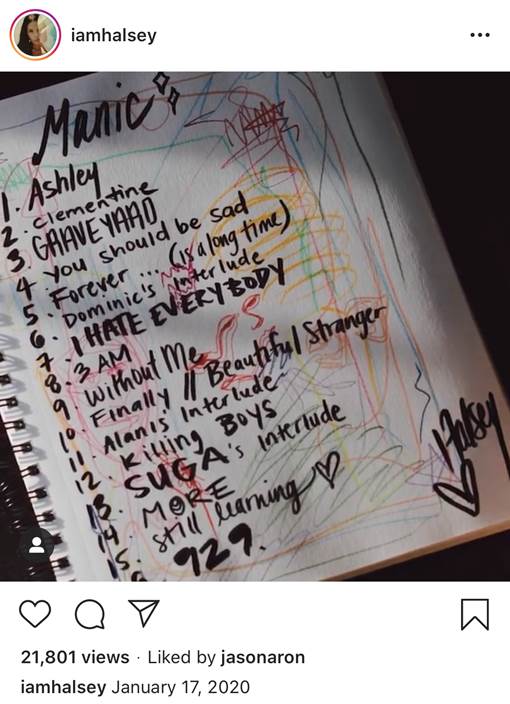 iamhalsey
Manic
1. Ashley
2. Clementine
3. GRAVEYARD
4. You should be sad
5. Forever ... (is a long time)
6. Dominic's Interlude
7. I HATE EVERYBODY
8. 3 AM
9. Without Me
10. Finally // Beautiful Stranger
11. Alanis' Interlude
12. Killing BOYS
13. SUGA's Interlude
14. MORE
15. Still learning ♡
929.
Halsey
21,801 views · Liked by jasonaron
iamhalsey January 17, 2020